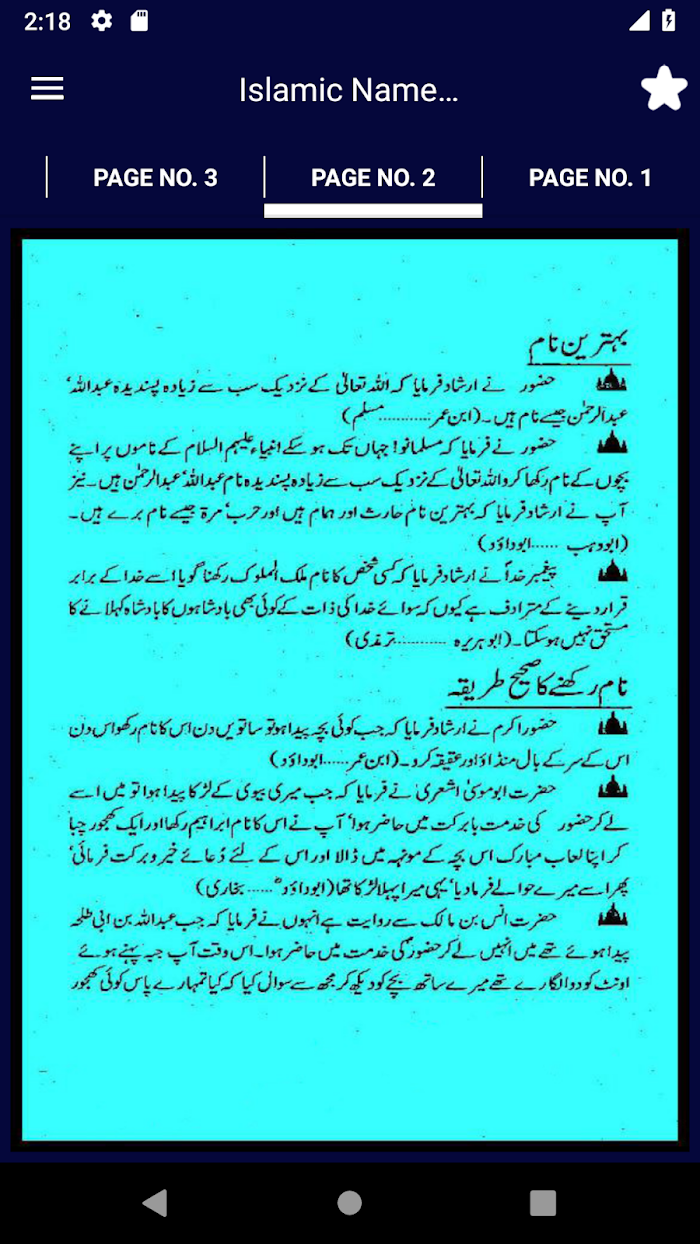 2:18
Islamic Name...
PAGE NO. 3
PAGE NO. 2
PAGE NO. 1
بہترین نام
حضور نے ارشاد فرمایا کہ اللہ تعالیٰ کے نزدیک سب سے زیادہ پسندیدہ عبداللہ'
عبدالرحمٰن جیسے نام ہیں۔ (ابن عمر............مسلم)
حضور نے فرمایا کہ مسلمانو! جہاں تک ہو سکے انبیاء علیہم السلام کے ناموں پر اپنے
بچوں کے نام رکھا کرو اللہ تعالیٰ کے نزدیک سب سے زیادہ پسندیدہ نام عبداللہ' عبدالرحمٰن ہیں۔ نیز
آپ نے ارشاد فرمایا کہ بہترین نام حارث اور ہمام ہیں اور حرب' مرة جیسے نام برے ہیں۔
(ابووہب ......ابوداؤد)
پیغمبر خداؐ نے ارشاد فرمایا کہ کسی شخص کا نام ملک الملوک رکھنا گویا اسے خدا کے برابر
قرار دینے کے مترادف ہے کیوں کہ سوائے خدا کی ذات کے کوئی بھی بادشاہوں کا بادشاہ کہلانے کا
مستحق نہیں ہو سکتا۔ (ابو ہریرہ ...........ترمذی)
نام رکھنے کا صحیح طریقہ
حضور اکرم نے ارشاد فرمایا کہ جب کوئی بچہ پیدا ہو تو ساتویں دن اس کا نام رکھو اس دن
اس کے سر کے بال منڈاؤ اور عقیقہ کرو۔ (ابن عمر......ابوداؤد)
حضرت ابو موسیٰ اشعری نے فرمایا کہ جب میری بیوی کے لڑکا پیدا ہوا تو میں اسے
لے کر حضور کی خدمت بابرکت میں حاضر ہوا' آپ نے اس کا نام ابراہیم رکھا اور ایک کھجور چبا
کر اپنا لعاب مبارک اس بچہ کے مونہہ میں ڈالا اور اس کے لئے دُعائے خیر و برکت فرمائی'
پھر اسے میرے حوالے فرما دیا' یہی میرا پہلا لڑکا تھا (ابوداؤد ......بخاری)
حضرت انس بن مالک سے روایت ہے انہوں نے فرمایا کہ جب عبداللہ بن ابی طلحہ
پیدا ہوئے تھے میں انہیں لے کر حضور کی خدمت میں حاضر ہوا۔ اس وقت آپ جبہ پہنے ہوئے
اونٹ کو دوا لگا رہے تھے میرے ساتھ بچے کو دیکھ کر مجھ سے سوال کیا کہ کیا تمہارے پاس کوئی کھجور